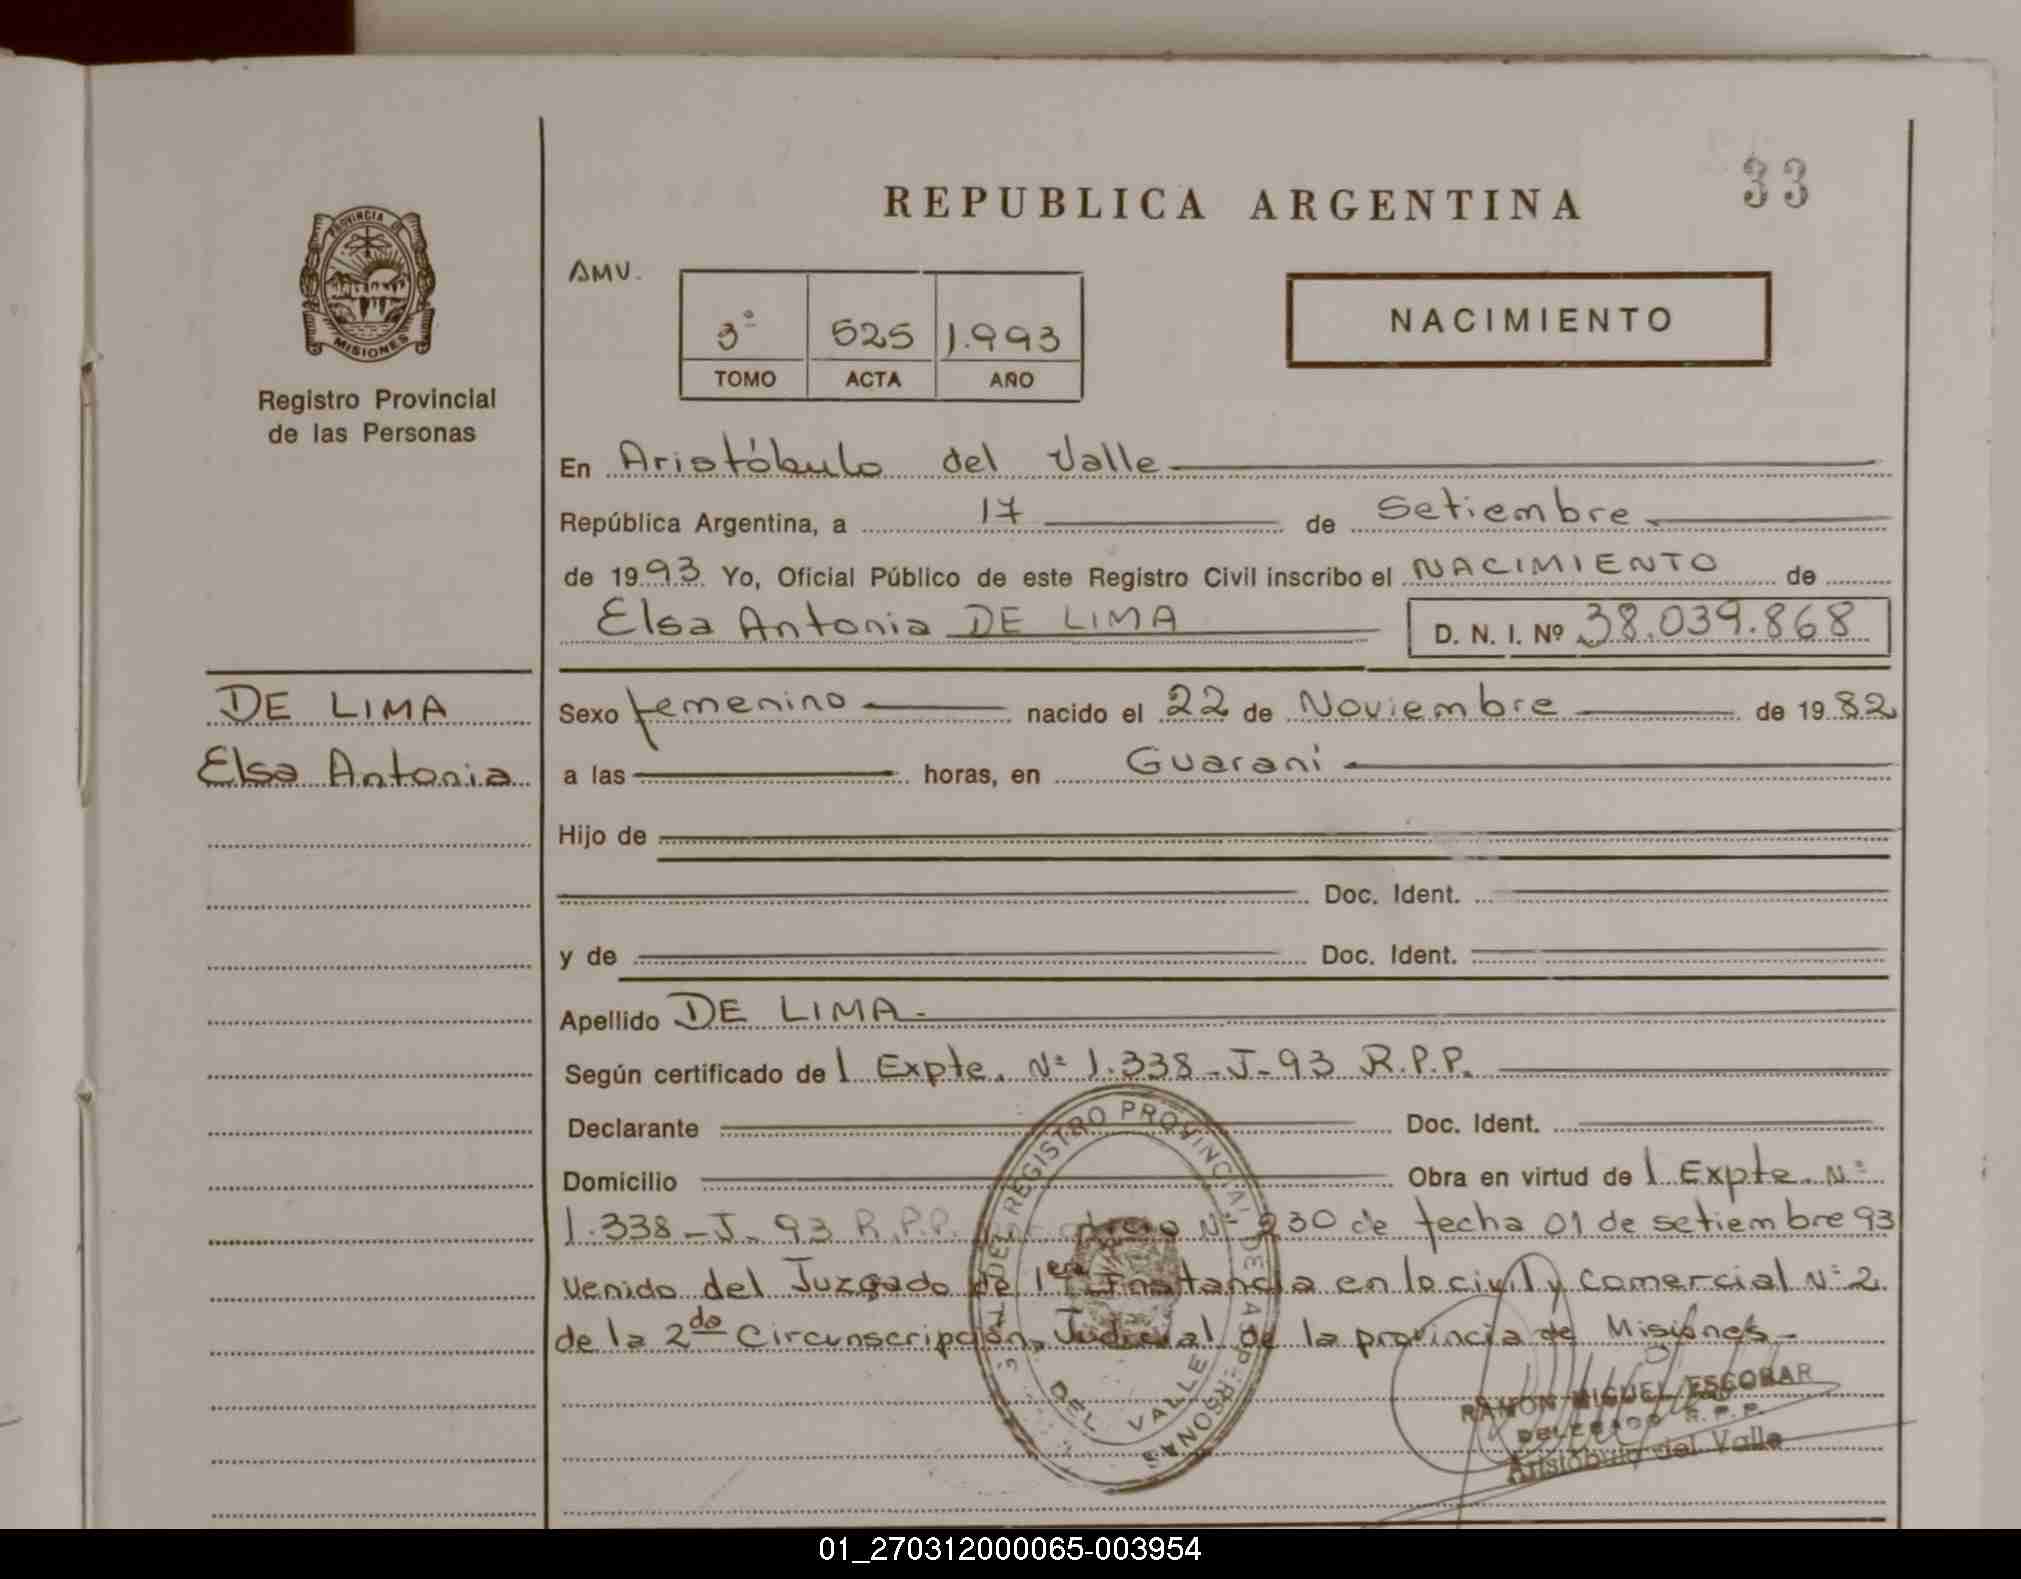 REPUBLICA ARGENTINA
33
PROVINCIA DE
MISIONES
Registro Provincial
de las Personas
AMV.
3º 525 1.993
TOMO ACTA AÑO
NACIMIENTO
En Aristóbulo del Valle
República Argentina, a 17 de Setiembre
de 1993 Yo, Oficial Público de este Registro Civil inscribo el NACIMIENTO de
Elsa Antonia DE LIMA D. N. I. Nº 38.039.868
DE LIMA
Elsa Antonia
Sexo femenino nacido el 22 de Noviembre de 1982
a las horas, en Guaraní
Hijo de
Doc. Ident.
y de Doc. Ident.
Apellido DE LIMA.-
Según certificado de l Expte. Nº 1.338-J-93 R.P.P.
Declarante Doc. Ident.
Domicilio Obra en virtud de l Expte. Nº
1.338-J-93 R.P.P. Nº 230 de fecha 01 de setiembre 93
venido del Juzgado de 1era Instancia en lo civil y comercial Nº 2
de la 2da Circunscripción Judicial de la provincia de Misiones-
REGISTRO PROVINCIAL DE LAS PERSONAS
DEL VALLE
RAMON MIGUEL ESCOBAR
DELEGADO R.P.P.
Aristóbulo del Valle
01_270312000065-003954